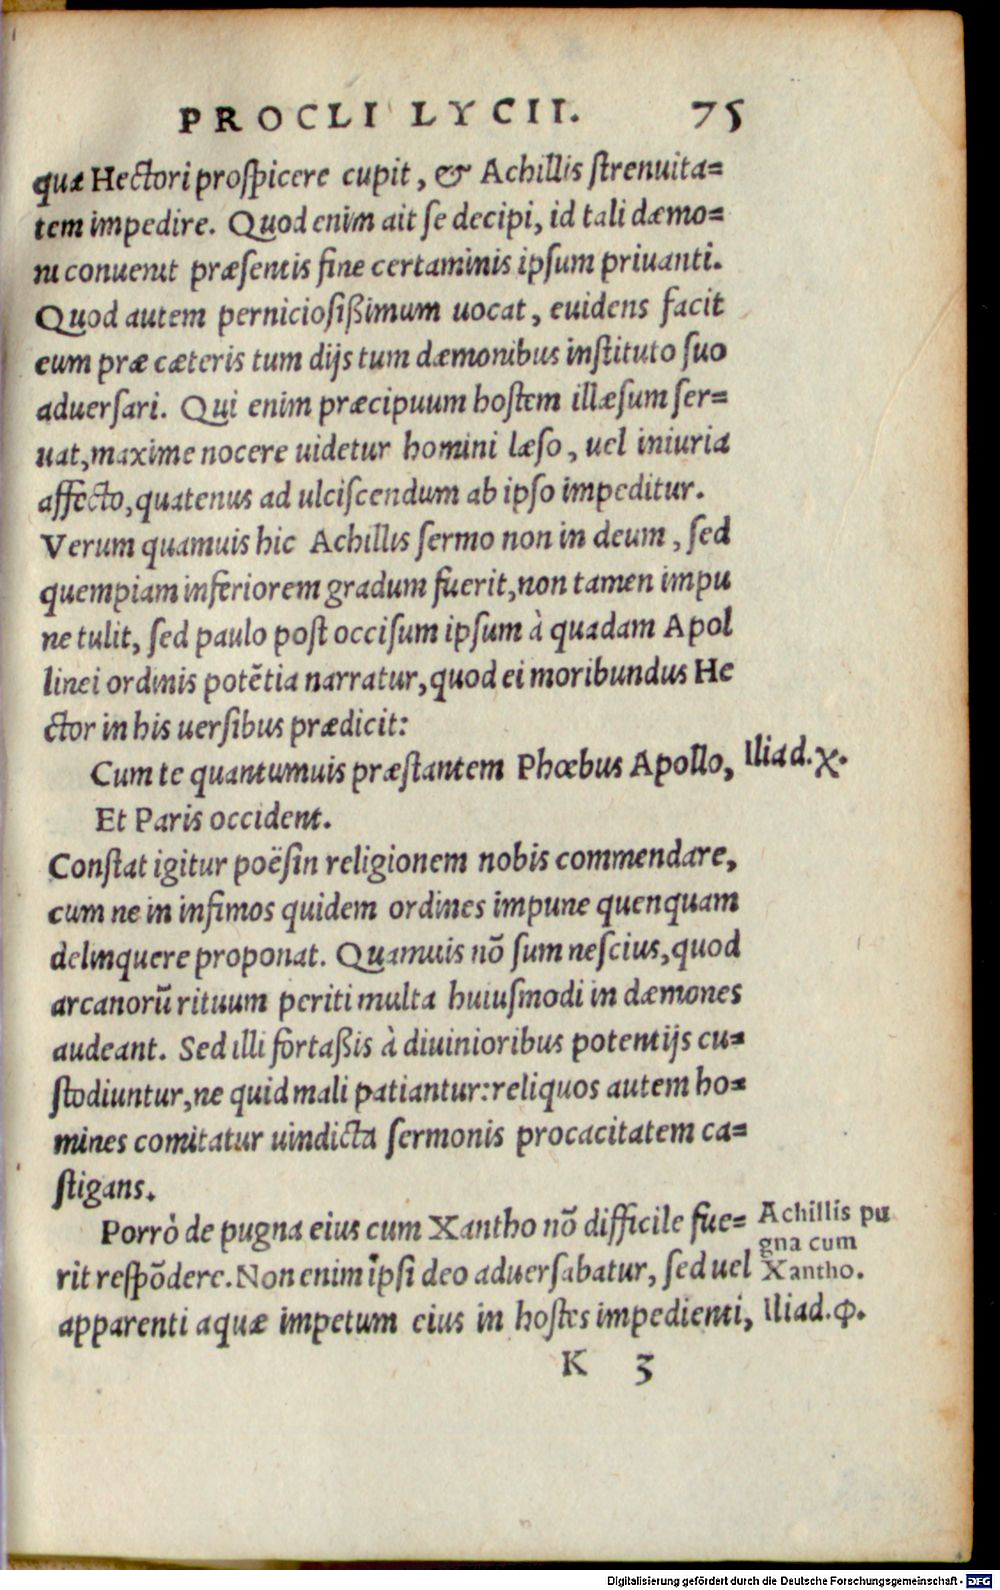 PROCLI LYCII. 75
quæ Hectori prospicere cupit, & Achillis strenuita=
tem impedire. Quod enim ait se decipi, id tali dæmo=
ni conuenit præsentis fine certaminis ipsum priuanti.
Quod autem perniciosißimum uocat, euidens facit
eum præ cæteris tum dijs tum dæmonibus instituto suo
aduersari. Qui enim præcipuum hostem illæsum ser=
uat, maxime nocere uidetur homini læso, uel iniuria
affecto, quatenus ad ulciscendum ab ipso impeditur.
Verum quamuis hic Achillis sermo non in deum, sed
quempiam inferiorem gradum fuerit, non tamen impu
ne tulit, sed paulo post occisum ipsum à quadam Apol
linei ordinis potẽtia narratur, quod ei moribundus He
ctor in his uersibus prædicit:
Cum te quantumuis præstantem Phœbus Apollo, Iliad.χ.
Et Paris occident.
Constat igitur poësin religionem nobis commendare,
cum ne in infimos quidem ordines impune quenquam
delinquere proponat. Quamuis nõ sum nescius, quod
arcanorũ rituum periti multa huiusmodi in dæmones
audeant. Sed illi fortaßis à diuinioribus potentijs cu=
stodiuntur, ne quid mali patiantur: reliquos autem ho=
mines comitatur uindicta sermonis procacitatem ca=
stigans.
Porrò de pugna eius cum Xantho nõ difficile fue= Achillis pu
gna cum
rit respõdere. Non enim ipsi deo aduersabatur, sed uel Xantho.
apparenti aquæ impetum eius in hostes impedienti, Iliad.φ.
K 3
Digitalisierung gefördert durch die Deutsche Forschungsgemeinschaft - DFG